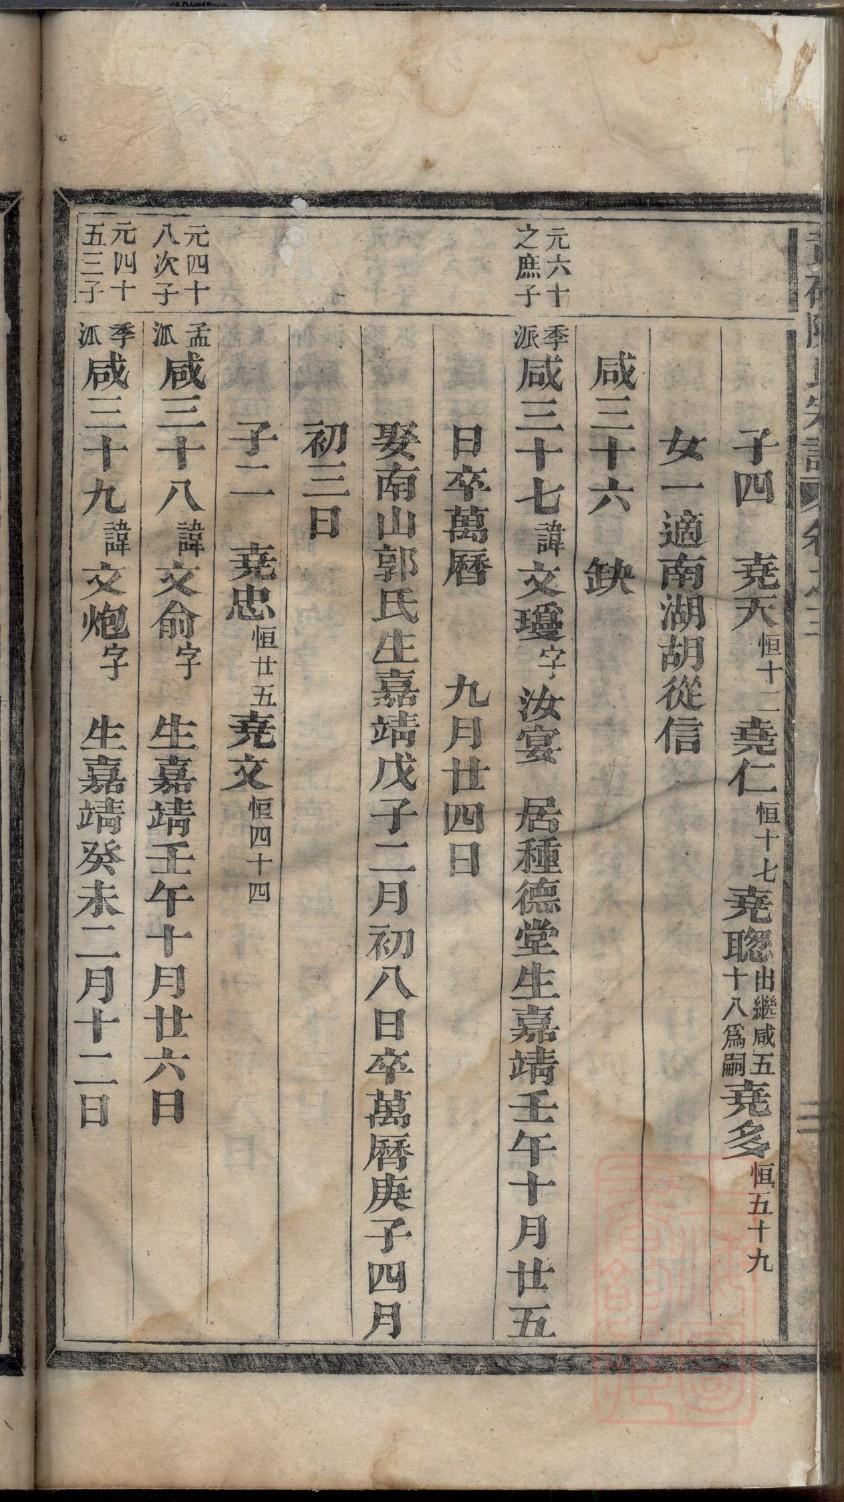 子四　堯天恒十二堯仁恒十七堯聰出繼咸五十八爲嗣堯多恒五十九
女一適南湖胡從信
咸三十六　缺
元六十之庶子
季派咸三十七諱文瓊字汝宴　居種德堂生嘉靖壬午十月廿五
日卒萬曆　　九月廿四日
娶南山郭氏生嘉靖戊子二月初八日卒萬曆庚子四月
初三日
子二　堯忠恒廿五堯文恒四十四
元四十八次子
孟派咸三十八諱文俞字　生嘉靖壬午十月廿六日
元四十五三子
季派咸三十九諱文炮字　生嘉靖癸未二月十二日